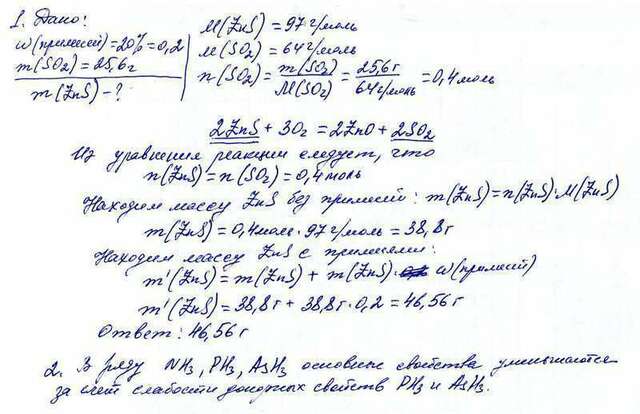 1. Дано:
w(примесей)=20%=0,2
m(SO2)=25,6г
m(ZnS)-?
M(ZnS)=97г/моль
M(SO2)=64г/моль
n(SO2)=m(SO2)/M(SO2)=25,6г/64г/моль=0,4моль
2ZnS+3O2=2ZnO+2SO2
Из уравнения реакции следует, что
n(ZnS)=n(SO2)=0,4моль
Находим массу ZnS без примесей: m(ZnS)=n(ZnS)·M(ZnS)
m(ZnS)=0,4моль·97г/моль=38,8г
Находим массу ZnS с примесями:
m'(ZnS)=m(ZnS)+m(ZnS)·w(примесей)
m'(ZnS)=38,8г+38,8г·0,2=46,56г
Ответ: 46,56г
2. В ряду NH3, PH3, AsH3 основные свойства уменьшаются
за счет слабости донорных свойств PH3 и AsH3.